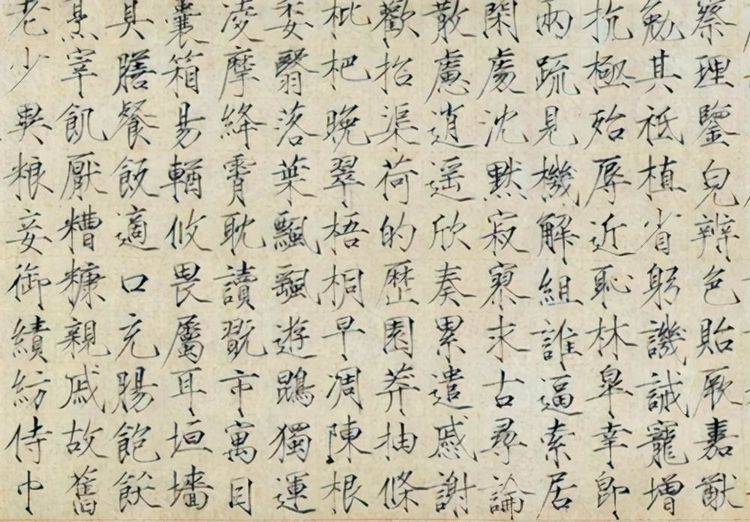 察理鑒皃辨色貽厥嘉猷
勉其祗植省躬譏誡寵增
抗極殆辱近恥林皐幸即
兩疏見機解組誰逼索居
閑處沈默寂寥求古尋論
散慮逍遥欣奏累遣戚謝
歡招渠荷的歷園莽抽條
枇杷晚翠梧桐早凋陳根
委翳落葉飄颻遊鵾獨運
凌摩絳霄耽讀翫市寓目
囊箱易輶攸畏屬耳垣墻
具膳餐飯適口充腸飽飫
烹宰飢厭糟糠親戚故舊
老少異粮妾御績紡侍巾